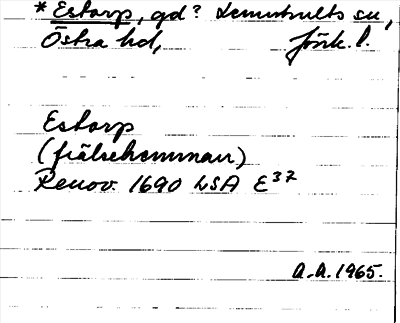 * Estorp, gd? Lemnhults sn,
Östra hd, Jönk. l.
Estorp
(frälsehemman)
Renov. 1690 LSA E37
A.A. 1965.